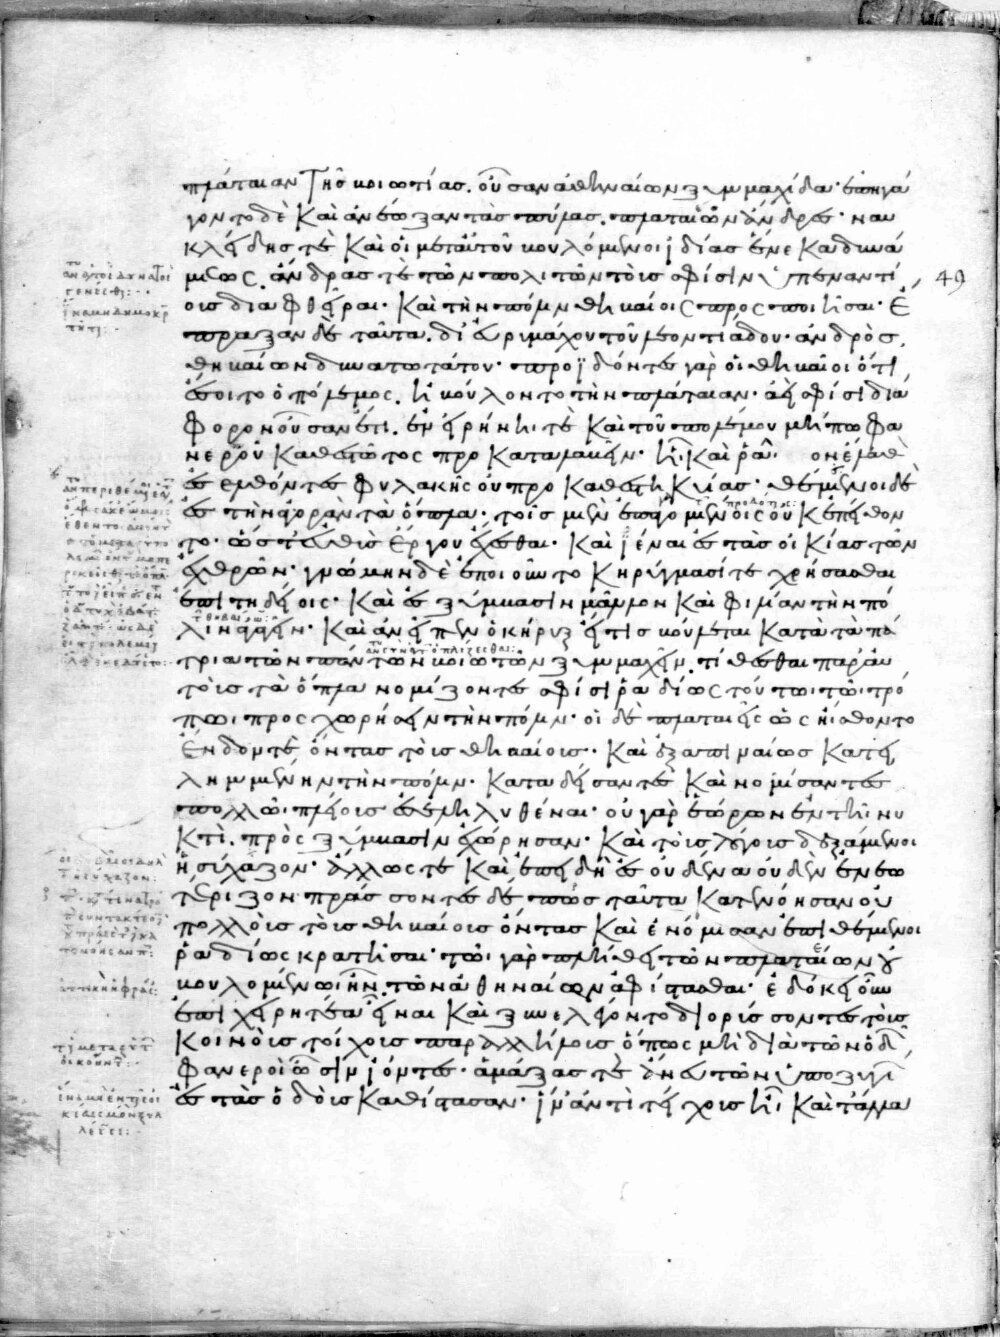 πλάταιαν τῆς βοιωτίας. οὖσαν ἀθηναίων ξυμμαχίδα· ἐπηγά
γοντο δὲ καὶ ἀνέωξαν τὰς πύλας. πλαταιῶν ἄνδρες· ναυ
κλείδης τὲ καὶ οἱ μετ' αὐτοῦ βουλόμενοι ἰδίας ἕνεκα δυνά
μεως. ἄνδρας τὲ τῶν πολιτῶν τοὺς σφίσιν ὑπεναντί
ους διαφθεῖραι· καὶ τὴν πόλιν θηβαίοις προσποιῆσαι· ἔ
πραξαν δὲ ταῦτα. δι' εὐριμάχου τοῦ λεοντιάδου· ἀνδρὸς
θηβαίων δυνατωτάτου· προϊδόντες γὰρ οἱ θηβαῖοι ὅτι
ἔσοιτο ὁ πόλεμος. ἠβούλοντο τὴν πλάταιαν· ἀεὶ σφίσι διά
φορον οὖσαν ἔτι. ἐν εἰρήνηι τὲ καὶ τοῦ πολέμου μήπω φα
νεροῦ καθεστῶτος προκαταλαβεῖν· ἧι καὶ ῥᾶιον ἔλαθον
ἐσελθόντες φυλακῆς οὐ προκαθεστηκυίας· θέμενοι δὲ
ἐς τὴν ἀγορὰν τὰ ὅπλα· τοῖς μὲν ἐπαγομένοις οὐκ ἐπείθον
το· ὥστ' εὐθὺς ἔργου ἔχεσθαι· καὶ ἰέναι ἐς τὰς οἰκίας τῶν
ἐχθρῶν· γνώμην δὲ ἐποιοῦντο κηρύγμασί τε χρήσασθαι
ἐπιτηδείοις· καὶ ἐς ξύμβασιν μᾶλλον καὶ φιλίαν τὴν πό
λιν ἀγαγεῖν· καὶ ἀνεῖπεν ὁ κήρυξ εἴ τις βούλεται κατὰ τὰ πά
τρια τῶν πάντων βοιωτῶν ξυμμαχεῖν. τίθεσθαι παρ' αὐ
τοὺς τὰ ὅπλα νομίζοντες σφίσι ῥαδίως τούτωι τῶι τρό
πωι προσχωρήσειν τὴν πόλιν· οἱ δὲ πλαταιεῖς ὡς ἤισθοντο
ἔνδον τὲ ὄντας τοὺς θηβαίους· καὶ ἐξαπιναίως κατει
λημμένην τὴν πόλιν· καταδείσαντες καὶ νομίσαντες
πολλῶι πλείους ἐσεληλυθέναι· οὐ γὰρ ἑώρων ἐν τῆι νυ
κτί. πρὸς ξύμβασιν ἐχώρησαν· καὶ τοὺς λόγους δεξάμενοι
ἡσύχαζον· ἄλλως τὲ καὶ ἐπειδὴ ἐς οὐδένα οὐδὲν ἐνεω
τέριζον πράσσοντες δέ πως ταῦτα κατενόησαν οὐ
πολλοὺς τοὺς θηβαίους ὄντας καὶ ἐνόμισαν ἐπιθέμενοι
ῥαδίως κρατῆσαι· τῶι γὰρ πλήθει τῶν πλαταιέων οὐ
βουλομένωι ἦν τῶν ἀθηναίων ἀφίστασθαι· ἐδόκει οὖν
ἐπιχειρητέα εἶναι καὶ ξυνελέγοντο διορύσσοντες τοὺς
κοινοὺς τοίχους παρ' ἀλλήλους ὅπως μὴ διὰ τῶν ὁδῶν
φανεροὶ ὦσιν ἰόντες· ἁμάξας τὲ ἄνευ τῶν ὑποζυγίων
ἐς τὰς ὁδοὺς καθίστασαν· ἵν' ἀντὶ τείχους ἦι· καὶ τἆλλα
49